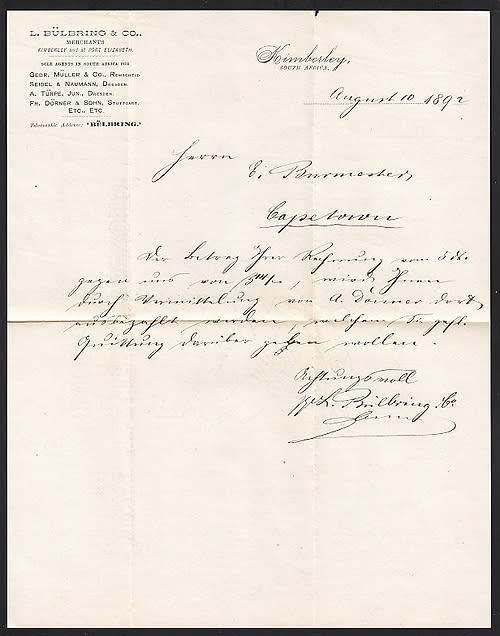 L. BÜLBRING & CO.,
MERCHANTS
KIMBERLEY and at PORT ELIZABETH.
SOLE AGENTS IN SOUTH AFRICA FOR
GEBR. MÜLLER & CO., REMSCHEID
SEIDEL & NAUMANN, DRESDEN.
A. TÜRPE, JUN., DRESDEN.
FR. DÖRNER & SOHN, STUTTGART.
ETC., ETC.
Telegraphic Address: "BÜLBRING."
Kimberley,
SOUTH AFRICA.
August 10 1892
Herrn
E. Burmester,
Capetown
Der Betrag Ihrer Rechnung vom 5 ds.
gegen uns von, wird Ihnen
durch Vermittelung von A. Dörner dort
ausbezahlt werden, welchem Sie gefl.
Quittung darüber geben wollen.
Achtungsvoll
L. Bülbring & Co